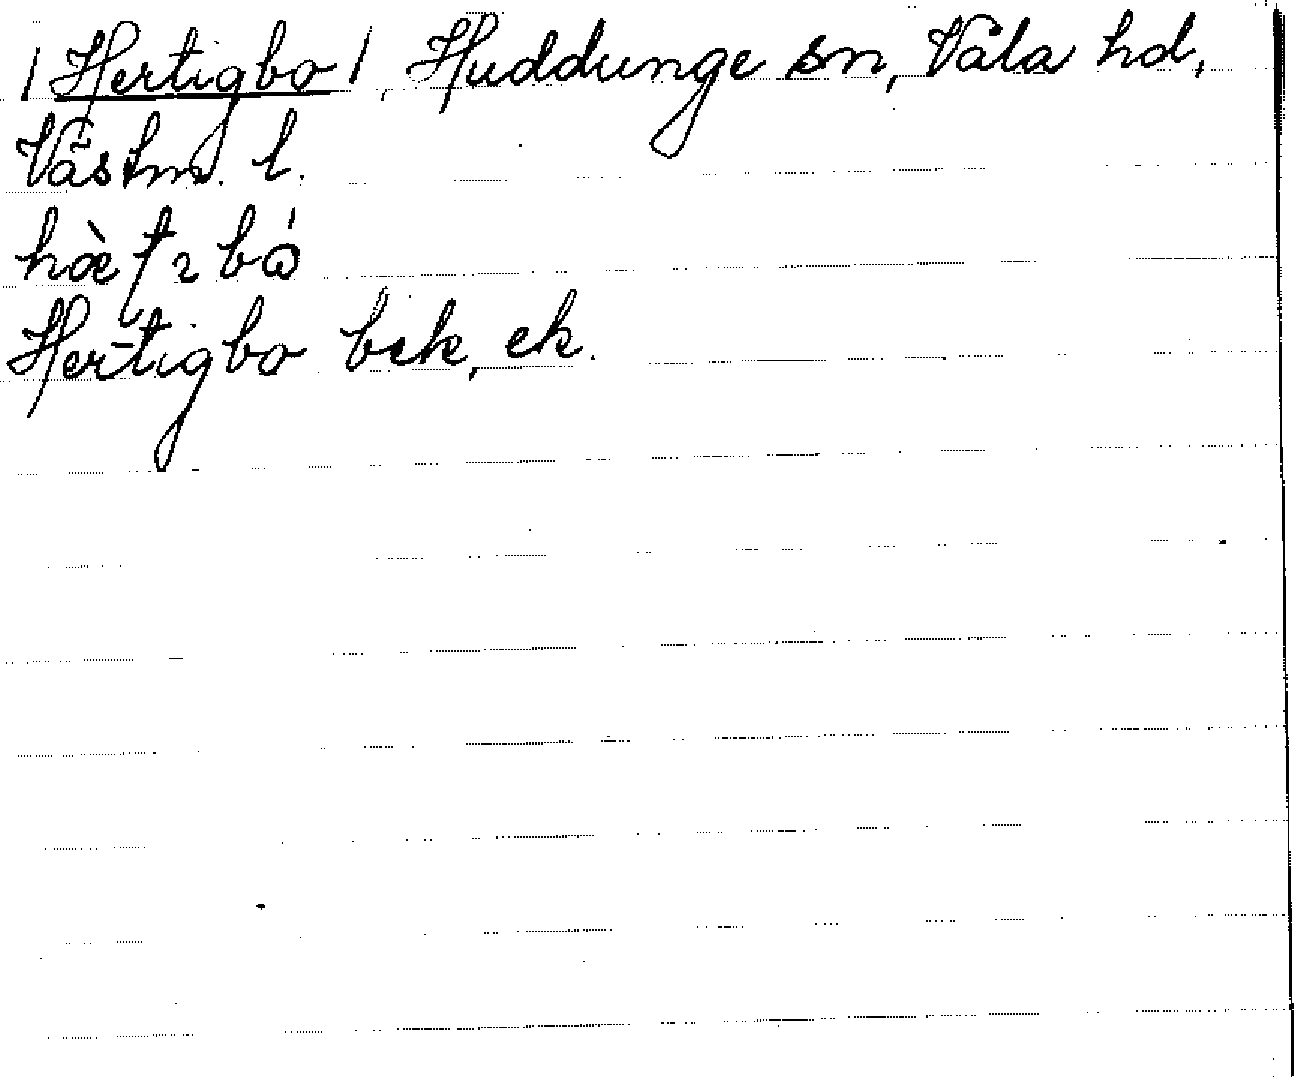 /Hertigbo/, Huddunge sn, Våla hd,
Västm. l.
Hertigbo bek, ek.